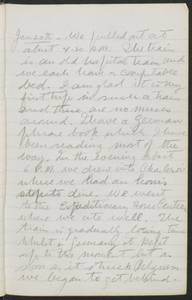 Jan 20th - We pulled out at
about 4:20 P.M. The train
is an old hospital train and
we each have a comfortable
bed. I am glad it is my
first trip in such a train
and there are no nurses
around. I have a German
phrase book which I have
been reading most of the
way. In the evening about
6 P.M. we drew into Charleroi
where we had an hours
stop. We went
to the Expeditionary Force Canteen
where we ate well. The
train is gradually losing time
Whilst in Germany it kept
up to the moment but as
soon as it struck Belgium
we began to get behind.